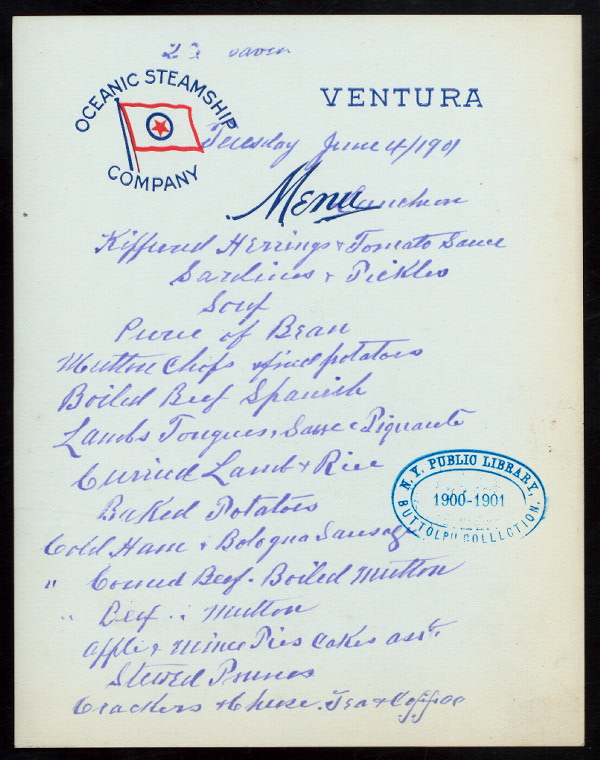 OCEANIC STEAMSHIP
COMPANY
VENTURA
Tuesday June 4/1901
Menu Luncheon
Kippered Herrings & Tomato Sauce
Sardines & Pickles
Soup
Puree of Bean
Mutton Chops & fried potatoes
Boiled Beef Spanish
Lambs Tongues, Sauce Piquante
Curried Lamb & Rice
Baked Potatoes
Cold Ham & Bologna Sausage
" Corned Beef. Boiled Mutton
" Beef " Mutton
Apple & Mince Pies Cakes asst.
Stewed Prunes
Crackers & Cheese. Tea & Coffee
N. Y. PUBLIC LIBRARY,
1900-1901
BUTTOLPH COLLECTION.